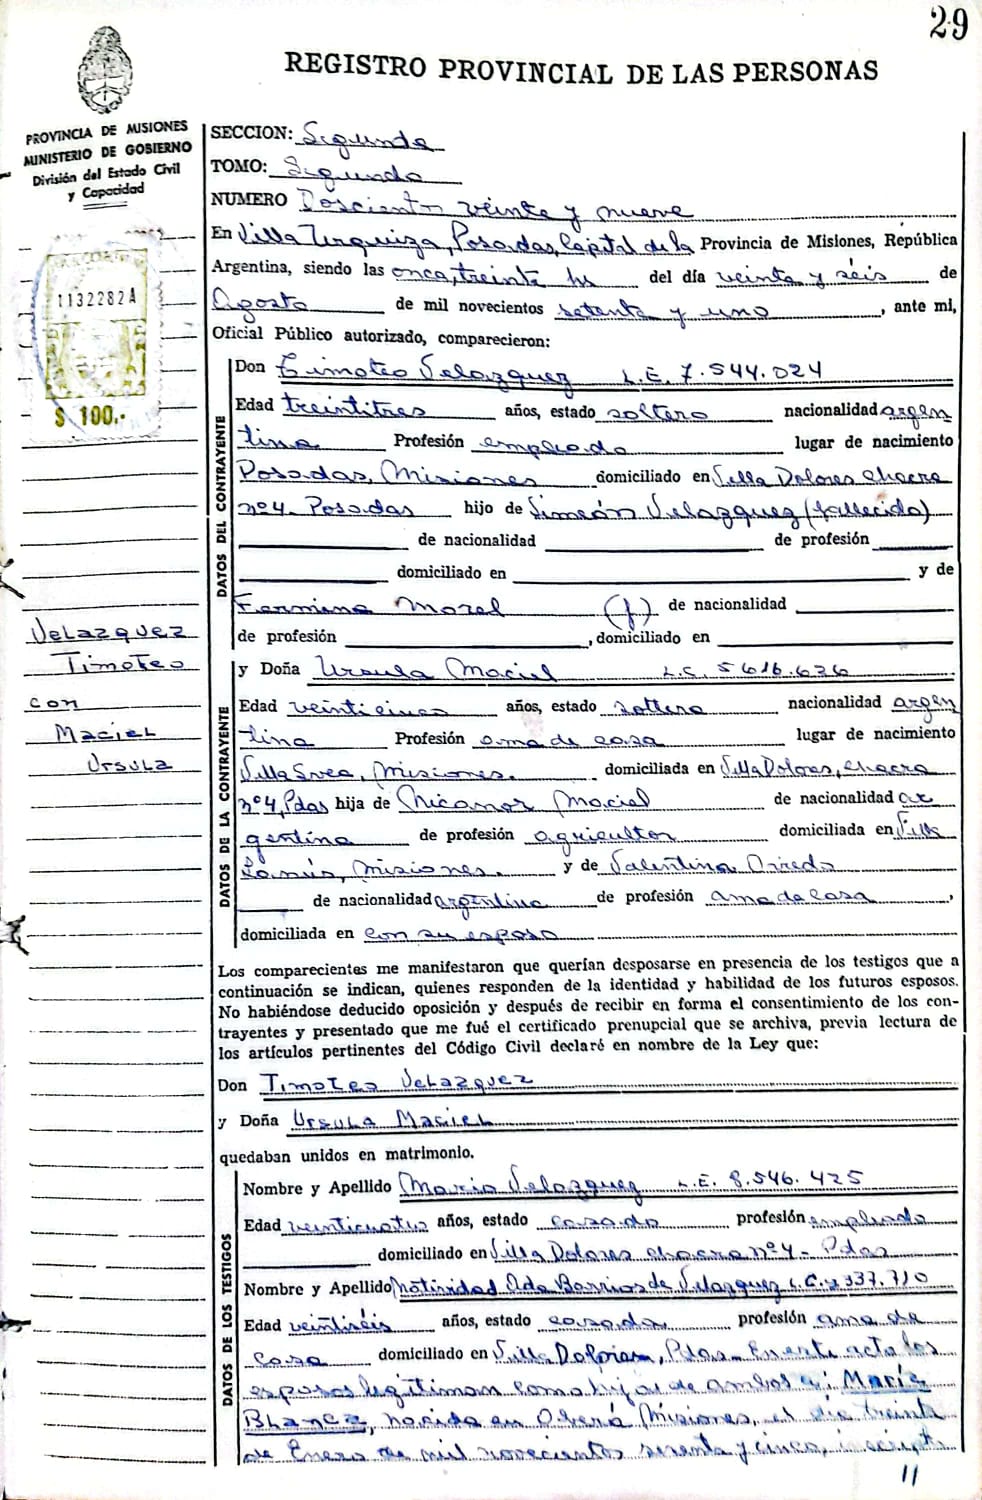 29
REGISTRO PROVINCIAL DE LAS PERSONAS
PROVINCIA DE MISIONES
MINISTERIO DE GOBIERNO
División del Estado Civil
y Capacidad
1132282A
$ 100.-
Velazquez
Timoteo
con
Maciel
Ursula
SECCION: Segunda
TOMO: Segundo
NUMERO Doscientos veinte y nueve
En Villa Urquiza, Posadas, Capital de la Provincia de Misiones, República
Argentina, siendo las once, treinta hs del día veinte y séis de
Agosto de mil novecientos setenta y uno, ante mi,
Oficial Público autorizado, comparecieron:
DATOS DEL CONTRAYENTE
Don Timoteo Velazquez L.E. 7.544.024
Edad treintitres años, estado soltero nacionalidad argen
tina Profesión empleado lugar de nacimiento
Posadas, Misiones domiciliado en Villa Dolores chacra
nº4. Posadas hijo de Simeón Velazquez (fallecido)
de nacionalidad de profesión
domiciliado en y de
Fermina Morel (f) de nacionalidad
de profesión , domiciliado en
DATOS DE LA CONTRAYENTE
y Doña Ursula Maciel L.C. 5.616.626
Edad veinticinco años, estado soltera nacionalidad argen
tina Profesión ama de casa lugar de nacimiento
Villa Svea, Misiones. domiciliada en Villa Dolores, chacra
nº4, Pdas hija de Nicanor Maciel de nacionalidad ar
gentino de profesión agricultor domiciliada en Villa
Lanús, Misiones. y de Valentina
de nacionalidad argentina de profesión ama de casa,
domiciliada en con su esposo
Los comparecientes me manifestaron que querían desposarse en presencia de los testigos que a
continuación se indican, quienes responden de la identidad y habilidad de los futuros esposos.
No habiéndose deducido oposición y después de recibir en forma el consentimiento de los con-
trayentes y presentado que me fué el certificado prenupcial que se archiva, previa lectura de
los artículos pertinentes del Código Civil declaré en nombre de la Ley que:
Don Timoteo Velazquez
y Doña Ursula Maciel
quedaban unidos en matrimonio.
DATOS DE LOS TESTIGOS
Nombre y Apellido Mario Velazquez L.E. 8.546.425
Edad veinticuatro años, estado casado profesión empleado
domiciliado en Villa Dolores chacra nº4 - Pdas
Nombre y Apellido Natividad Ada Barrios de Velazquez L.C. 337.710
Edad veintiséis años, estado casada profesión ama de
casa domiciliado en Villa Dolores, Pdas. En este acto los
esposos legitiman como hijos de ambos a: María
Blanca, nacida en Oberá Misiones, el día treinta
de Enero de mil novecientos sesenta y cinco, inscripta
11